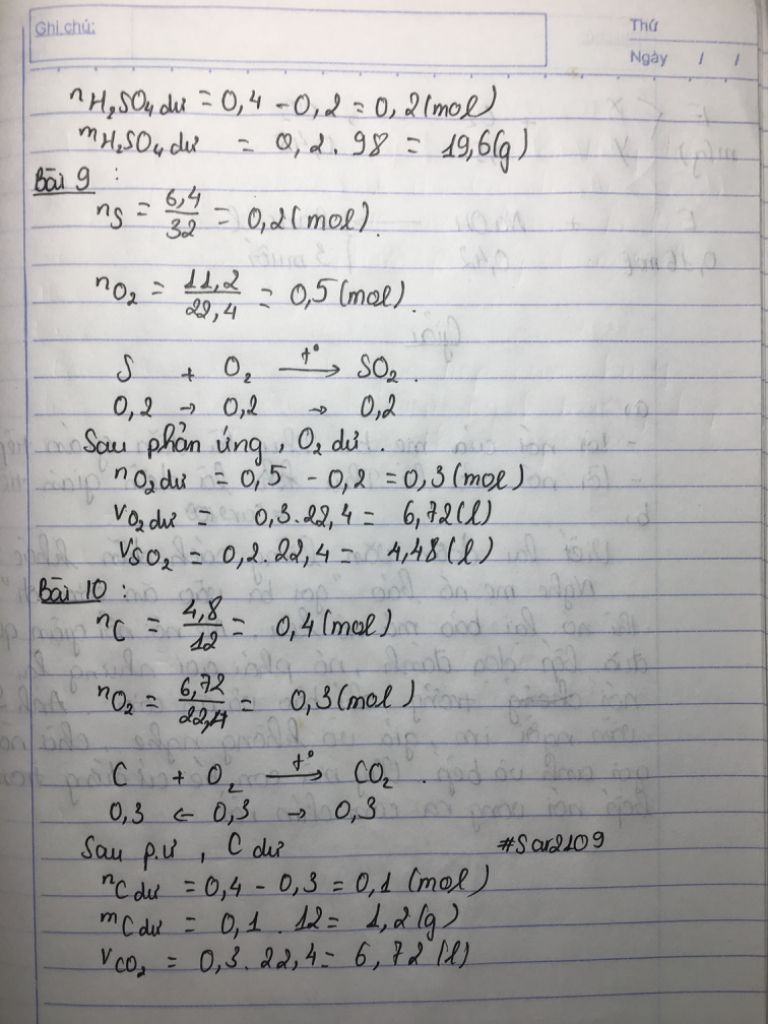 Ghi chú:
Thứ
Ngày / /
nH₂SO₄ dư = 0,4 - 0,2 = 0,2 (mol)
mH₂SO₄ dư = 0,2 . 98 = 19,6 (g)
Bài 9 :
nS = 6,4/32 = 0,2 (mol).
nO₂ = 11,2/22,4 = 0,5 (mol).
S + O₂ t°→ SO₂.
0,2 → 0,2 → 0,2
Sau phản ứng, O₂ dư.
nO₂ dư = 0,5 - 0,2 = 0,3 (mol)
VO₂ dư = 0,3 . 22,4 = 6,72 (l)
VSO₂ = 0,2 . 22,4 = 4,48 (l)
Bài 10 :
nC = 4,8/12 = 0,4 (mol)
nO₂ = 6,72/22,4 = 0,3 (mol)
C + O₂ t°→ CO₂.
0,3 ← 0,3 → 0,3
Sau p.ư, C dư
#Sar2109
nC dư = 0,4 - 0,3 = 0,1 (mol)
mC dư = 0,1 . 12 = 1,2 (g)
VCO₂ = 0,3 . 22,4 = 6,72 (l)